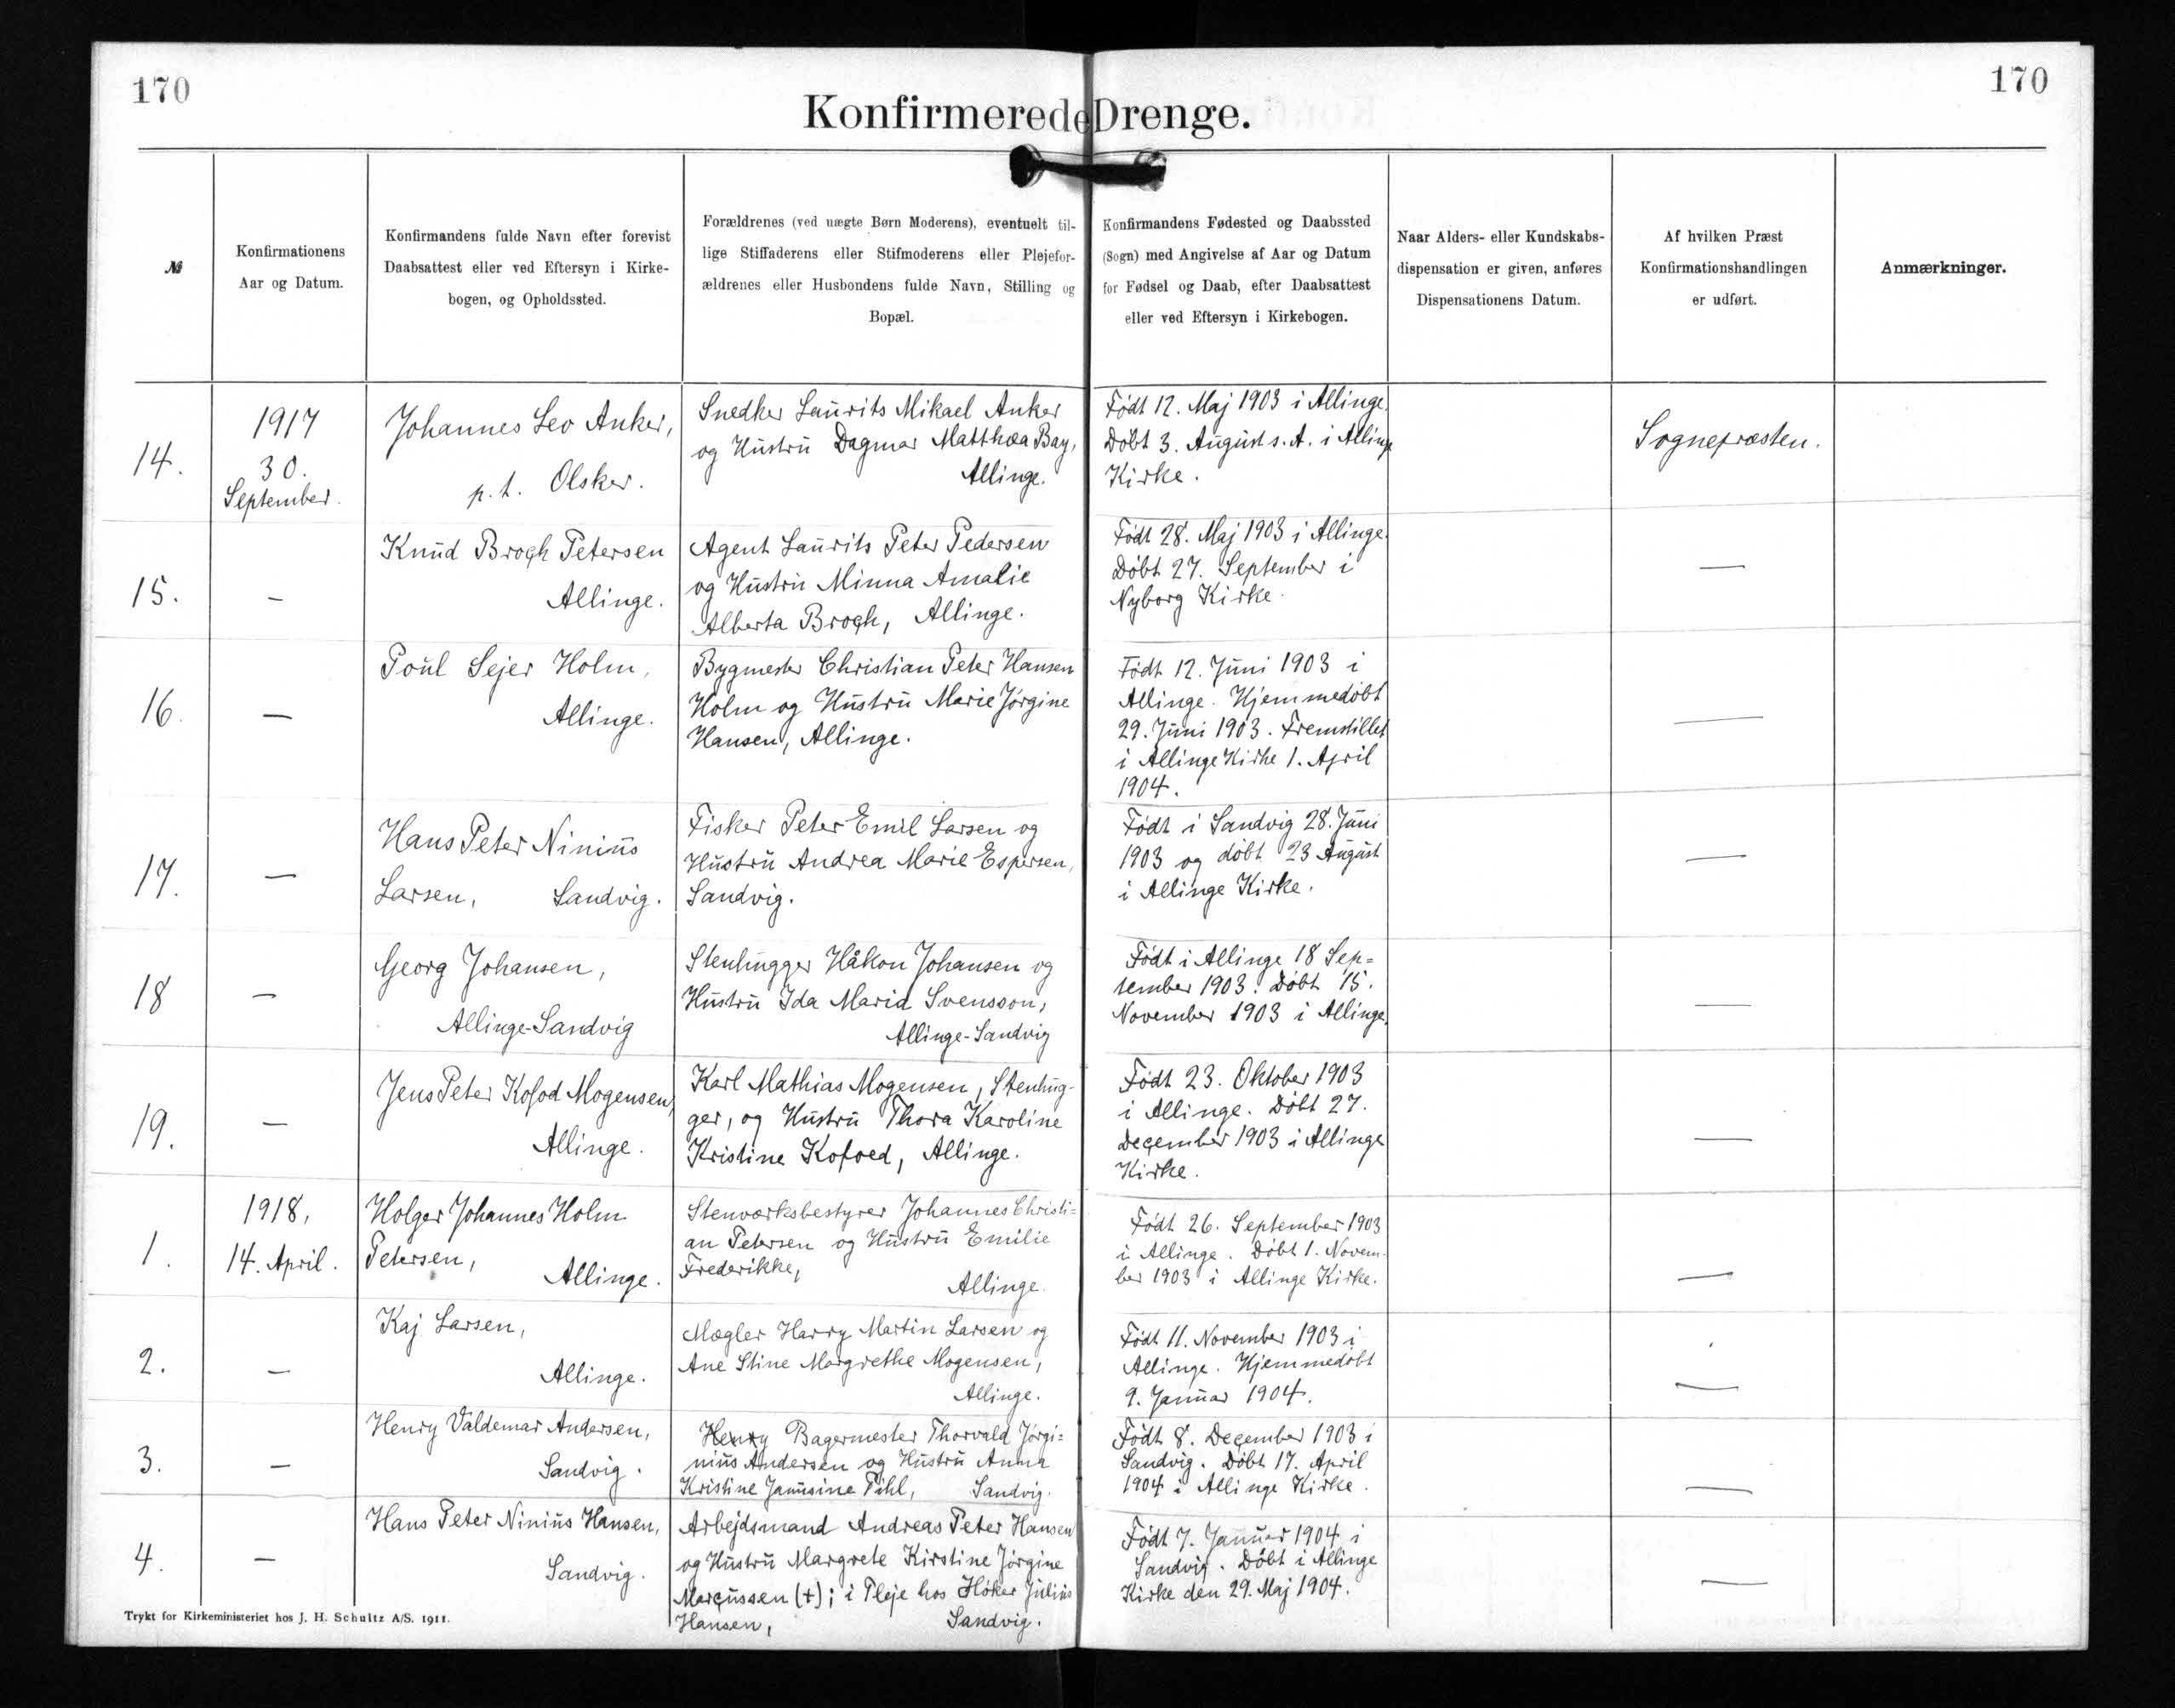 170
170
Konfirmerede Drenge.
№
Konfirmationens
Aar og Datum.
Konfirmandens fulde Navn efter forevist
Daabsattest eller ved Eftersyn i Kirke-
bogen, og Opholdssted.
Forældrenes (ved uægte Børn Moderens), eventuelt til-
lige Stiffaderens eller Stifmoderens eller Plejefor-
ældrenes eller Husbondens fulde Navn, Stilling og
Bopæl.
Konfirmandens Fødested og Daabssted
(Sogn) med Angivelse af Aar og Datum
for Fødsel og Daab, efter Daabsattest
eller ved Eftersyn i Kirkebogen.
Naar Alders- eller Kundskabs-
dispensation er given, anføres
Dispensationens Datum.
Af hvilken Præst
Konfirmationshandlingen
er udført.
Anmærkninger.
14.
1917
30.
September.
Johannes Leo Anker,
p.t. Olsker.
Snedker Laurits Mikael Anker
og Hustru Dagmar Matthæa Bay,
Allinge.
Født 12. Maj 1903 i Allinge.
Døbt 3. August s. A. i Allinge
Kirke.
Sognepræsten.
15.
–
Knud Brogh Petersen
Allinge.
Agent Laurits Peter Pedersen
og Hustru Minna Amalie
Alberta Brogh, Allinge.
Født 28. Maj 1903 i Allinge.
Døbt 27. September i
Nyborg Kirke.
—
16.
—
Poul Sejer Holm,
Allinge.
Bygmester Christian Peter Hansen
Holm og Hustru Marie Jørgine
Hansen, Allinge.
Født 12. Juni 1903 i
Allinge. Hjemmedøbt
29. Juni 1903. Fremstillet
i Allinge Kirke 1. April
1904.
—
17.
—
Hans Peter Ninius
Larsen, Sandvig.
Fisker Peter Emil Larsen og
Hustru Andrea Marie Espersen,
Sandvig.
Født i Sandvig 28. Juni
1903 og døbt 23 August
i Allinge Kirke.
—
18
—
Georg Johansen,
Allinge-Sandvig
Stenhugger Håkon Johansen og
Hustru Ida Maria Svensson,
Allinge-Sandvig
Født i Allinge 18 Sep=
tember 1903. Døbt 15.
November 1903 i Allinge.
—
19.
—
Jens Peter Kofod Mogensen,
Allinge.
Karl Mathias Mogensen, Stenhug-
ger, og Hustru Thora Karoline
Kristine Kofoed, Allinge.
Født 23. Oktober 1903
i Allinge. Døbt 27.
December 1903 i Allinge
Kirke.
—
1.
1918,
14. April.
Holger Johannes Holm
Petersen,
Allinge.
Stenværksbestyrer Johannes Christi=
an Petersen og Hustru Emilie
Frederikke,
Allinge.
Født 26. September 1903
i Allinge. Døbt 1. Novem-
ber 1903 i Allinge Kirke.
—
2.
—
Kaj Larsen,
Allinge.
Mægler Harry Martin Larsen og
Ane Stine Margrethe Mogensen,
Allinge.
Født 11. November 1903 i
Allinge. Hjemmedøbt
9. Januar 1904.
—
3.
—
Henry Valdemar Andersen,
Sandvig.
Henry Bagermester Thorvald Jørgi=
nius Andersen og Hustru Anna
Kristine Janusine Pihl, Sandvig.
Født 8. December 1903 i
Sandvig. Døbt 17. April
1904 i Allinge Kirke.
—
4.
—
Hans Peter Ninius Hansen,
Sandvig.
Arbejdsmand Andreas Peter Hansen
og Hustru Margrete Kirstine Jørgine
Marcussen (+); i Pleje hos Høker Julius
Hansen, Sandvig.
Født 7. Januar 1904 i
Sandvig. Døbt i Allinge
Kirke den 29. Maj 1904.
—
Trykt for Kirkeministeriet hos J. H. Schultz A/S. 1911.